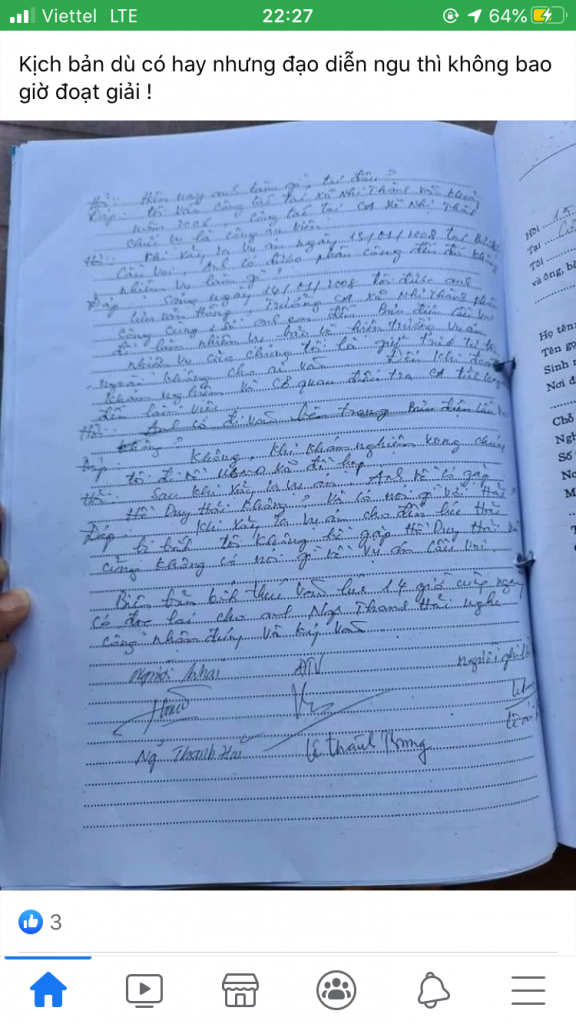 Viettel LTE 22:27 64%
Kịch bản dù có hay nhưng đạo diễn ngu thì không bao
giờ đoạt giải !
Hỏi: Hiện nay anh làm gì, tại đâu?
Đáp: Tôi vẫn công tác tại xã Nhị Thành
năm 2006 công tác tại CA xã Nhị Thành
chức vụ là công an viên
Hỏi: Khi xảy ra vụ án ngày 13/01/2008 tại Bưu
Cầu Voi, Anh có được phân công đến đó không
nhiệm vụ làm gì?
Đáp: Sáng ngày 14/01/2008 tôi được anh
Văn Thống, Trưởng CA xã Nhị Thành phân
công cùng anh đến Bưu điện Cầu Voi
để làm nhiệm vụ bảo vệ hiện trường vụ án
nhiệm vụ của chúng tôi là giữ trật tự
ngoài không cho ai vào. Đến khi
khám nghiệm và cơ quan điều tra CA
đến làm việc
Hỏi: Anh có đi vào bên trong Bưu điện Cầu Voi
không?
Đáp: Không, khi khám nghiệm xong chúng
tôi đi về UBND xã để họp
Hỏi: Sau khi xảy ra vụ án Anh có gặp
Hồ Duy Hải không? Và có nói gì với Hải?
Đáp: Khi xảy ra vụ án cho đến lúc Hải
bị bắt tôi không hề gặp Hồ Duy Hải và
cũng không có nói gì về vụ án Cầu Voi.
Biên bản kết thúc vào lúc 14 giờ cùng ngày
có đọc lại cho anh Ng. Thanh Hải nghe
công nhận đúng và ký tên
Người khai ĐTV Người ghi
Ng. Thanh Hải Lê Thành Trung
Hồi 15
Tại
Tôi
và ông, bà
Họ tên
Tên gọ
Sinh n
Nơi đ
Chỗ
Ngh
Số
No
M
3